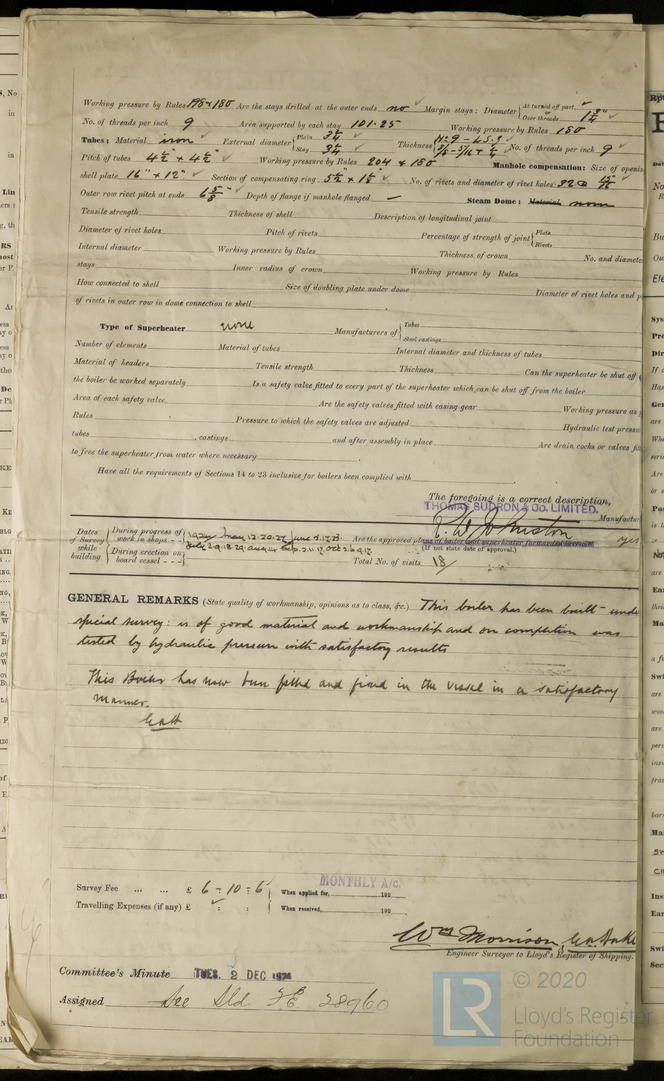 Working pressure by Rules 198 & 180 Are the stays drilled at the outer ends no Margin stays: Diameter { At turned off part, Over threads 1¾"
No. of threads per inch 9 Area supported by each stay 101.25 Working pressure by Rules 180
Tubes: Material iron External diameter { Plain 3¼ Stay 3¼ Thickness { No. of threads per inch 9
Pitch of tubes 4½" × 4½" Working pressure by Rules 204 & 180 Manhole compensation: Size of openin
shell plate 16" × 12" Section of compensating ring No. of rivets and diameter of rivet holes 15/16
Outer row rivet pitch at ends Depth of flange if manhole flanged — Steam Dome: Material none
Tensile strength Thickness of shell Description of longitudinal joint
Diameter of rivet holes Pitch of rivets Percentage of strength of joint { Plate Rivets
Internal diameter Working pressure by Rules Thickness of crown No. and diamete
stays Inner radius of crown Working pressure by Rules
How connected to shell Size of doubling plate under dome Diameter of rivet holes and p
of rivets in outer row in dome connection to shell
Type of Superheater none Manufacturers of { Tubes Steel castings
Number of elements Material of tubes Internal diameter and thickness of tubes
Material of headers Tensile strength Thickness Can the superheater be shut off
the boiler be worked separately Is a safety valve fitted to every part of the superheater which can be shut off from the boiler
Area of each safety valve Are the safety valves fitted with easing gear Working pressure as
Rules Pressure to which the safety valves are adjusted Hydraulic test pressu
tubes , castings and after assembly in place Are drain cocks or valves fi
to free the superheater from water where necessary
Have all the requirements of Sections 14 to 23 inclusive for boilers been complied with
The foregoing is a correct description,
THOMAS SUDRON & Co. LIMITED.
Manufactu
Dates of Survey while building { During progress of work in shops - - } May 13.20.27 June Are the approved plans of boiler and superheater forwarded herewith yes
{ During erection on board vessel - - - } (If not state date of approval.)
Total No. of visits 18
GENERAL REMARKS (State quality of workmanship, opinions as to class, &c.) This boiler has been built unde
special survey: is of good material and workmanship and on completion was
tested by hydraulic pressure with satisfactory results
This Boiler has now been fitted and fixed in the vessel in a satisfactory
manner.
Survey Fee ... ... £ 6 - 10 : 6 When applied for, MONTHLY A/c. 192
Travelling Expenses (if any) £ : : When received, 192
Wm Morrison
Engineer Surveyor to Lloyd's Register of Shipping.
Committee's Minute TUES. 2 DEC 1924
Assigned See Sld FE 28960
© 2020
LR Lloyd's Register
Foundation